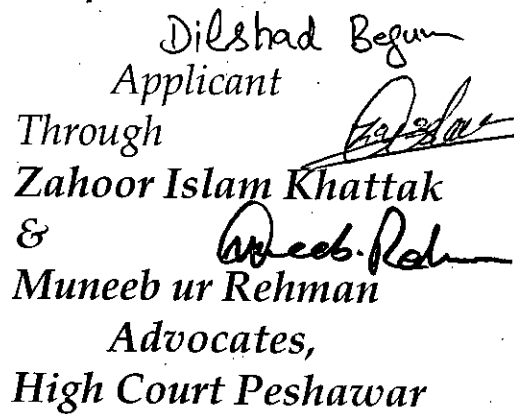 Dilshad Begum
Applicant
Through
Zahoor Islam Khattak
&
Muneeb. Rehm
Muneeb ur Rehman
Advocates,
High Court Peshawar